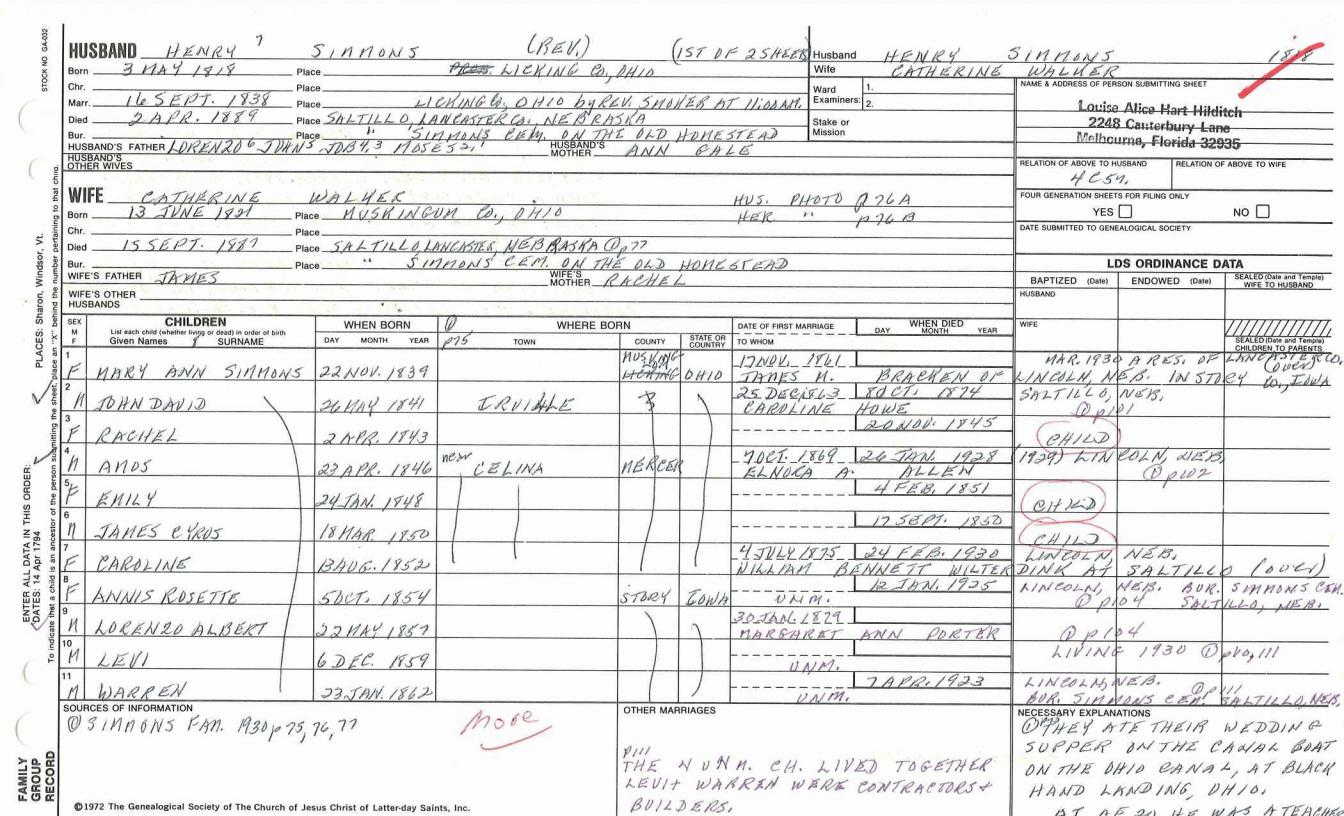 STOCK NO. GA-032
PLACES: Sharon, Windsor, Vt.
ENTER ALL DATA IN THIS ORDER:
DATES: 14 Apr 1794
To indicate that a child is an ancestor of the person submitting the sheet, place an "X" behind the number pertaining to that child.
FAMILY GROUP RECORD
HUSBAND HENRY 7 SIMMONS (REV.) (1ST OF 2 SHEETS)
Born 3 MAY 1818 Place LICKING CO., OHIO
Chr. Place
Marr. 16 SEPT. 1838 Place LICKING CO, OHIO by REV. SMOKER AT 11:00 AM.
Died 2 APR. 1889 Place SALTILLO, LANCASTER CO., NEBRASKA
Bur. Place " SIMMONS CEM. ON THE OLD HOMESTEAD
HUSBAND'S FATHER LORENZO 6 JOHN 5 JOB 4,3 MOSES 2,1 HUSBAND'S MOTHER ANN GALE
HUSBAND'S OTHER WIVES
Husband HENRY SIMMONS 1818
Wife CATHERINE WALKER
Ward Examiners: 1. 2.
Stake or Mission
NAME & ADDRESS OF PERSON SUBMITTING SHEET
Louise Alice Hart Hilditch
2248 Canterbury Lane
Melbourne, Florida 32935
RELATION OF ABOVE TO HUSBAND RELATION OF ABOVE TO WIFE
4C5r.
FOUR GENERATION SHEETS FOR FILING ONLY
YES NO
DATE SUBMITTED TO GENEALOGICAL SOCIETY
WIFE CATHERINE WALKER HUS. PHOTO p 76A
Born 13 JUNE 1821 Place MUSKINGUM CO., OHIO HER " p76B
Chr. Place
Died 15 SEPT. 1887 Place SALTILLO, LANCASTER, NEBRASKA ① p77
Bur. Place " SIMMONS CEM. ON THE OLD HOMESTEAD
WIFE'S FATHER JAMES WIFE'S MOTHER RACHEL
WIFE'S OTHER HUSBANDS
LDS ORDINANCE DATA
BAPTIZED (Date) ENDOWED (Date) SEALED (Date and Temple) WIFE TO HUSBAND
HUSBAND
WIFE
SEALED (Date and Temple) CHILDREN TO PARENTS
SEX M F CHILDREN List each child (whether living or dead) in order of birth Given Names 8 SURNAME
WHEN BORN DAY MONTH YEAR
① p75 WHERE BORN TOWN COUNTY STATE OR COUNTRY
DATE OF FIRST MARRIAGE TO WHOM
WHEN DIED DAY MONTH YEAR
1 F MARY ANN SIMMONS 22 NOV. 1839 MUSKINGUM LICKING OHIO 17 NOV. 1861 JAMES M. BRACKEN OF LINCOLN, NEB. IN STORY CO., IOWA MAR. 1930 A RES. OF LANCASTER CO. (over)
2 M JOHN DAVID 26 MAY 1841 IRVILLE 25 DEC. 1863 CAROLINE HOWE 8 OCT. 1874 SALTILLO, NEB. ① p101
3 F RACHEL 2 APR. 1843 20 NOV. 1845 CHILD
4 M AMOS 23 APR. 1846 new CELINA MERCER 7 OCT. 1869 ELNORA A. ALLEN 26 JAN. 1928 (1929) LINCOLN, NEB. ① p102
5 F EMILY 24 JAN. 1848 4 FEB. 1851 CHILD
6 M JAMES CYRUS 18 MAR. 1850 17 SEPT. 1850 CHILD
7 F CAROLINE 13 AUG. 1852 4 JULY 1875 WILLIAM BENNETT WILTERDINK AT SALTILLO (over) 24 FEB. 1930 LINCOLN, NEB.
8 F ANNIS ROSETTE 5 OCT. 1854 STORY IOWA UNM. 12 JAN. 1925 LINCOLN, NEB. BUR. SIMMONS CEM. ① p104 SALTILLO, NEB.
9 M LORENZO ALBERT 22 MAY 1857 30 JAN. 1879 MARGARET ANN PORTER ① p104
10 M LEVI 6 DEC. 1859 UNM. LIVING 1930 ① p110, 111
11 M WARREN 23 JAN. 1862 UNM. 7 APR. 1923 LINCOLN, NEB. ① p111 BUR. SIMMONS CEM. SALTILLO, NEB.
SOURCES OF INFORMATION
① SIMMONS FAM. 1930 p 75, 76, 77
More
©1972 The Genealogical Society of The Church of Jesus Christ of Latter-day Saints, Inc.
OTHER MARRIAGES
p111
THE 4 UNM. CH. LIVED TOGETHER
LEVI + WARREN WERE CONTRACTORS +
BUILDERS.
NECESSARY EXPLANATIONS
① THEY ATE THEIR WEDDING
SUPPER ON THE CANAL BOAT
ON THE OHIO CANAL, AT BLACK
HAND LANDING, OHIO.
AT AE 20 HE WAS A TEACHER